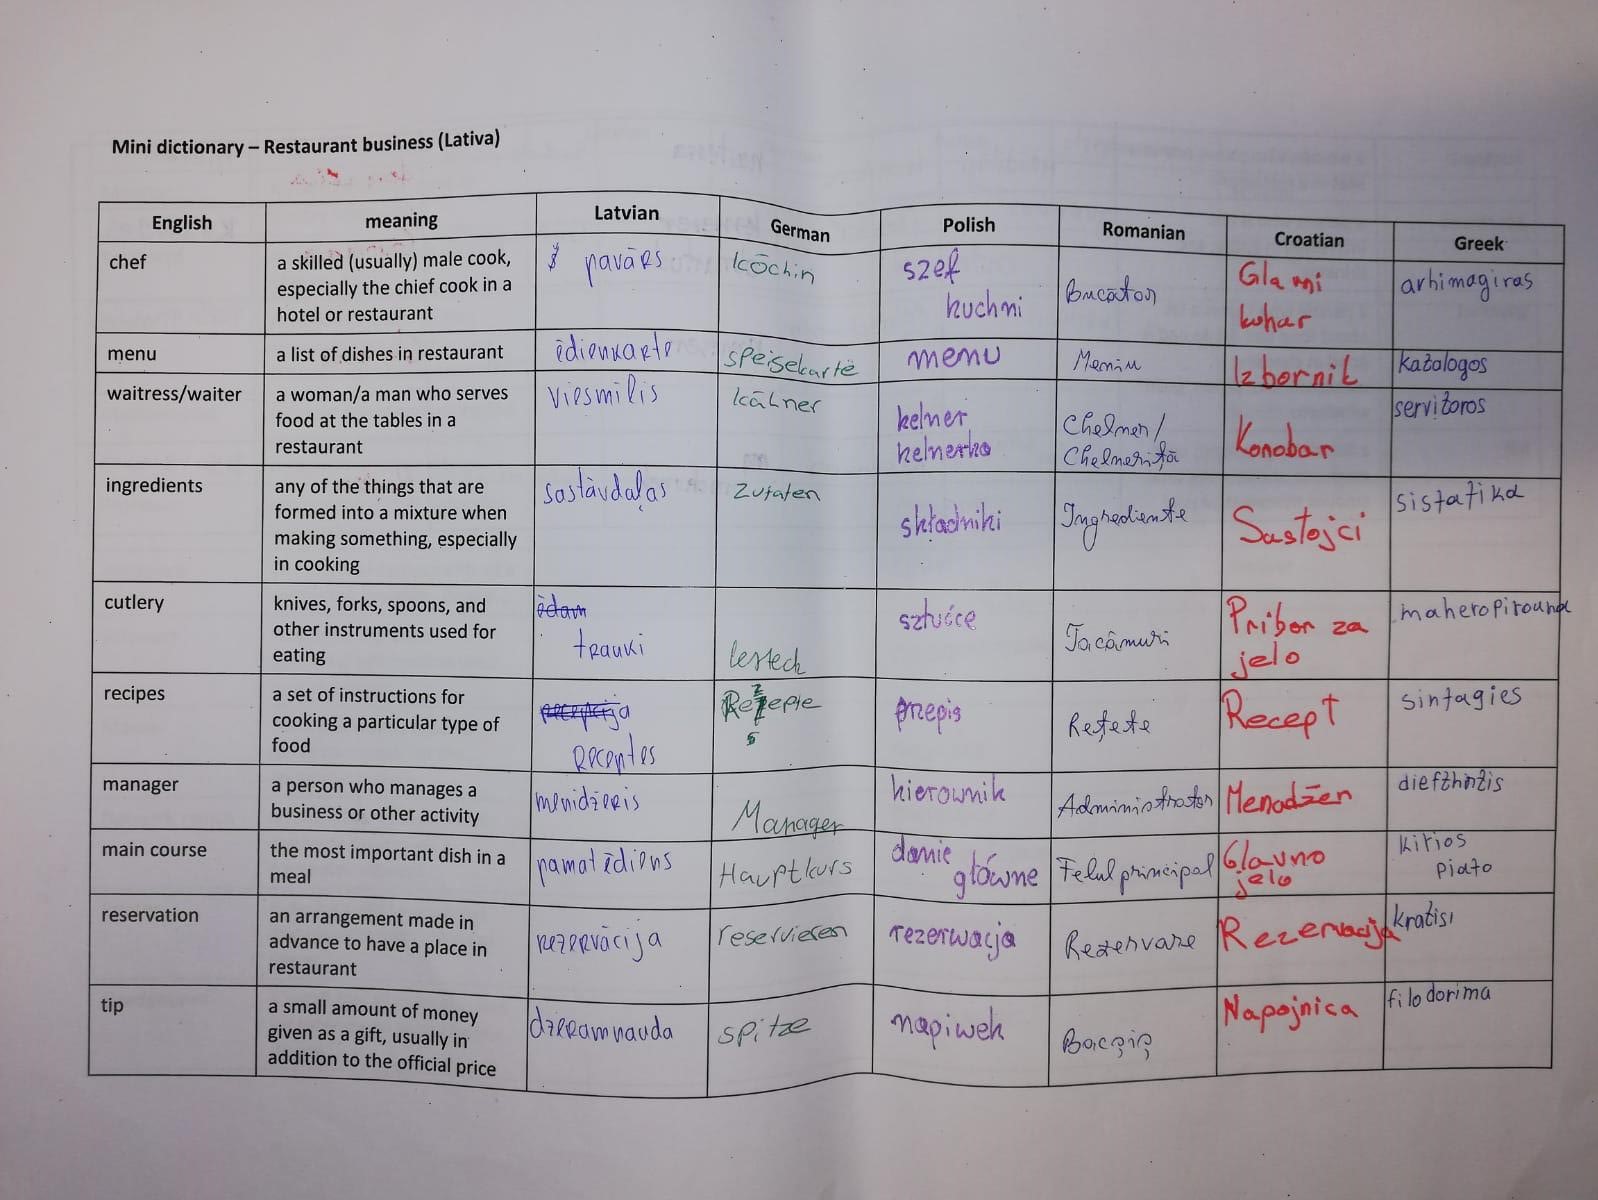 Mini dictionary – Restaurant business (Lativa)
English meaning Latvian German Polish Romanian Croatian Greek
chef
a skilled (usually) male cook,
especially the chief cook in a
hotel or restaurant
pavārs
Köchin
szef
kuchni
Bucător
Glavni
kuhar
arhimagiras
menu
a list of dishes in restaurant
ēdienkarte
speisekarte
menu
Meniu
Izbornik
kažalogos
waitress/waiter
a woman/a man who serves
food at the tables in a
restaurant
viesmīlis
kälner
kelner
kelnerka
Chelner/
Chelneriță
Konobar
servitoros
ingredients
any of the things that are
formed into a mixture when
making something, especially
in cooking
sastāvdaļas
Zutaten
składniki
Ingrediente
Sastojci
sistatika
cutlery
knives, forks, spoons, and
other instruments used for
eating
trauki
sztućce
Tacâmuri
Pribor za
jelo
maheropirouna
recipes
a set of instructions for
cooking a particular type of
food
Receptes
Rezepte
przepis
Rețete
Recept
sintagies
manager
a person who manages a
business or other activity
menidžeris
Manager
kierownik
Administrator
Menadžer
main course
the most important dish in a
meal
pamatēdiens
Hauptkurs
danie
główne
Felul principal
Glavno
jelo
kirios
piato
reservation
an arrangement made in
advance to have a place in
restaurant
rezervācija
reservieren
rezerwacja
Rezervare
Rezervacija
kratisi
tip
a small amount of money
given as a gift, usually in
addition to the official price
dzeramnauda
spitze
napiwek
Bacșiș
Napojnica
filodorima